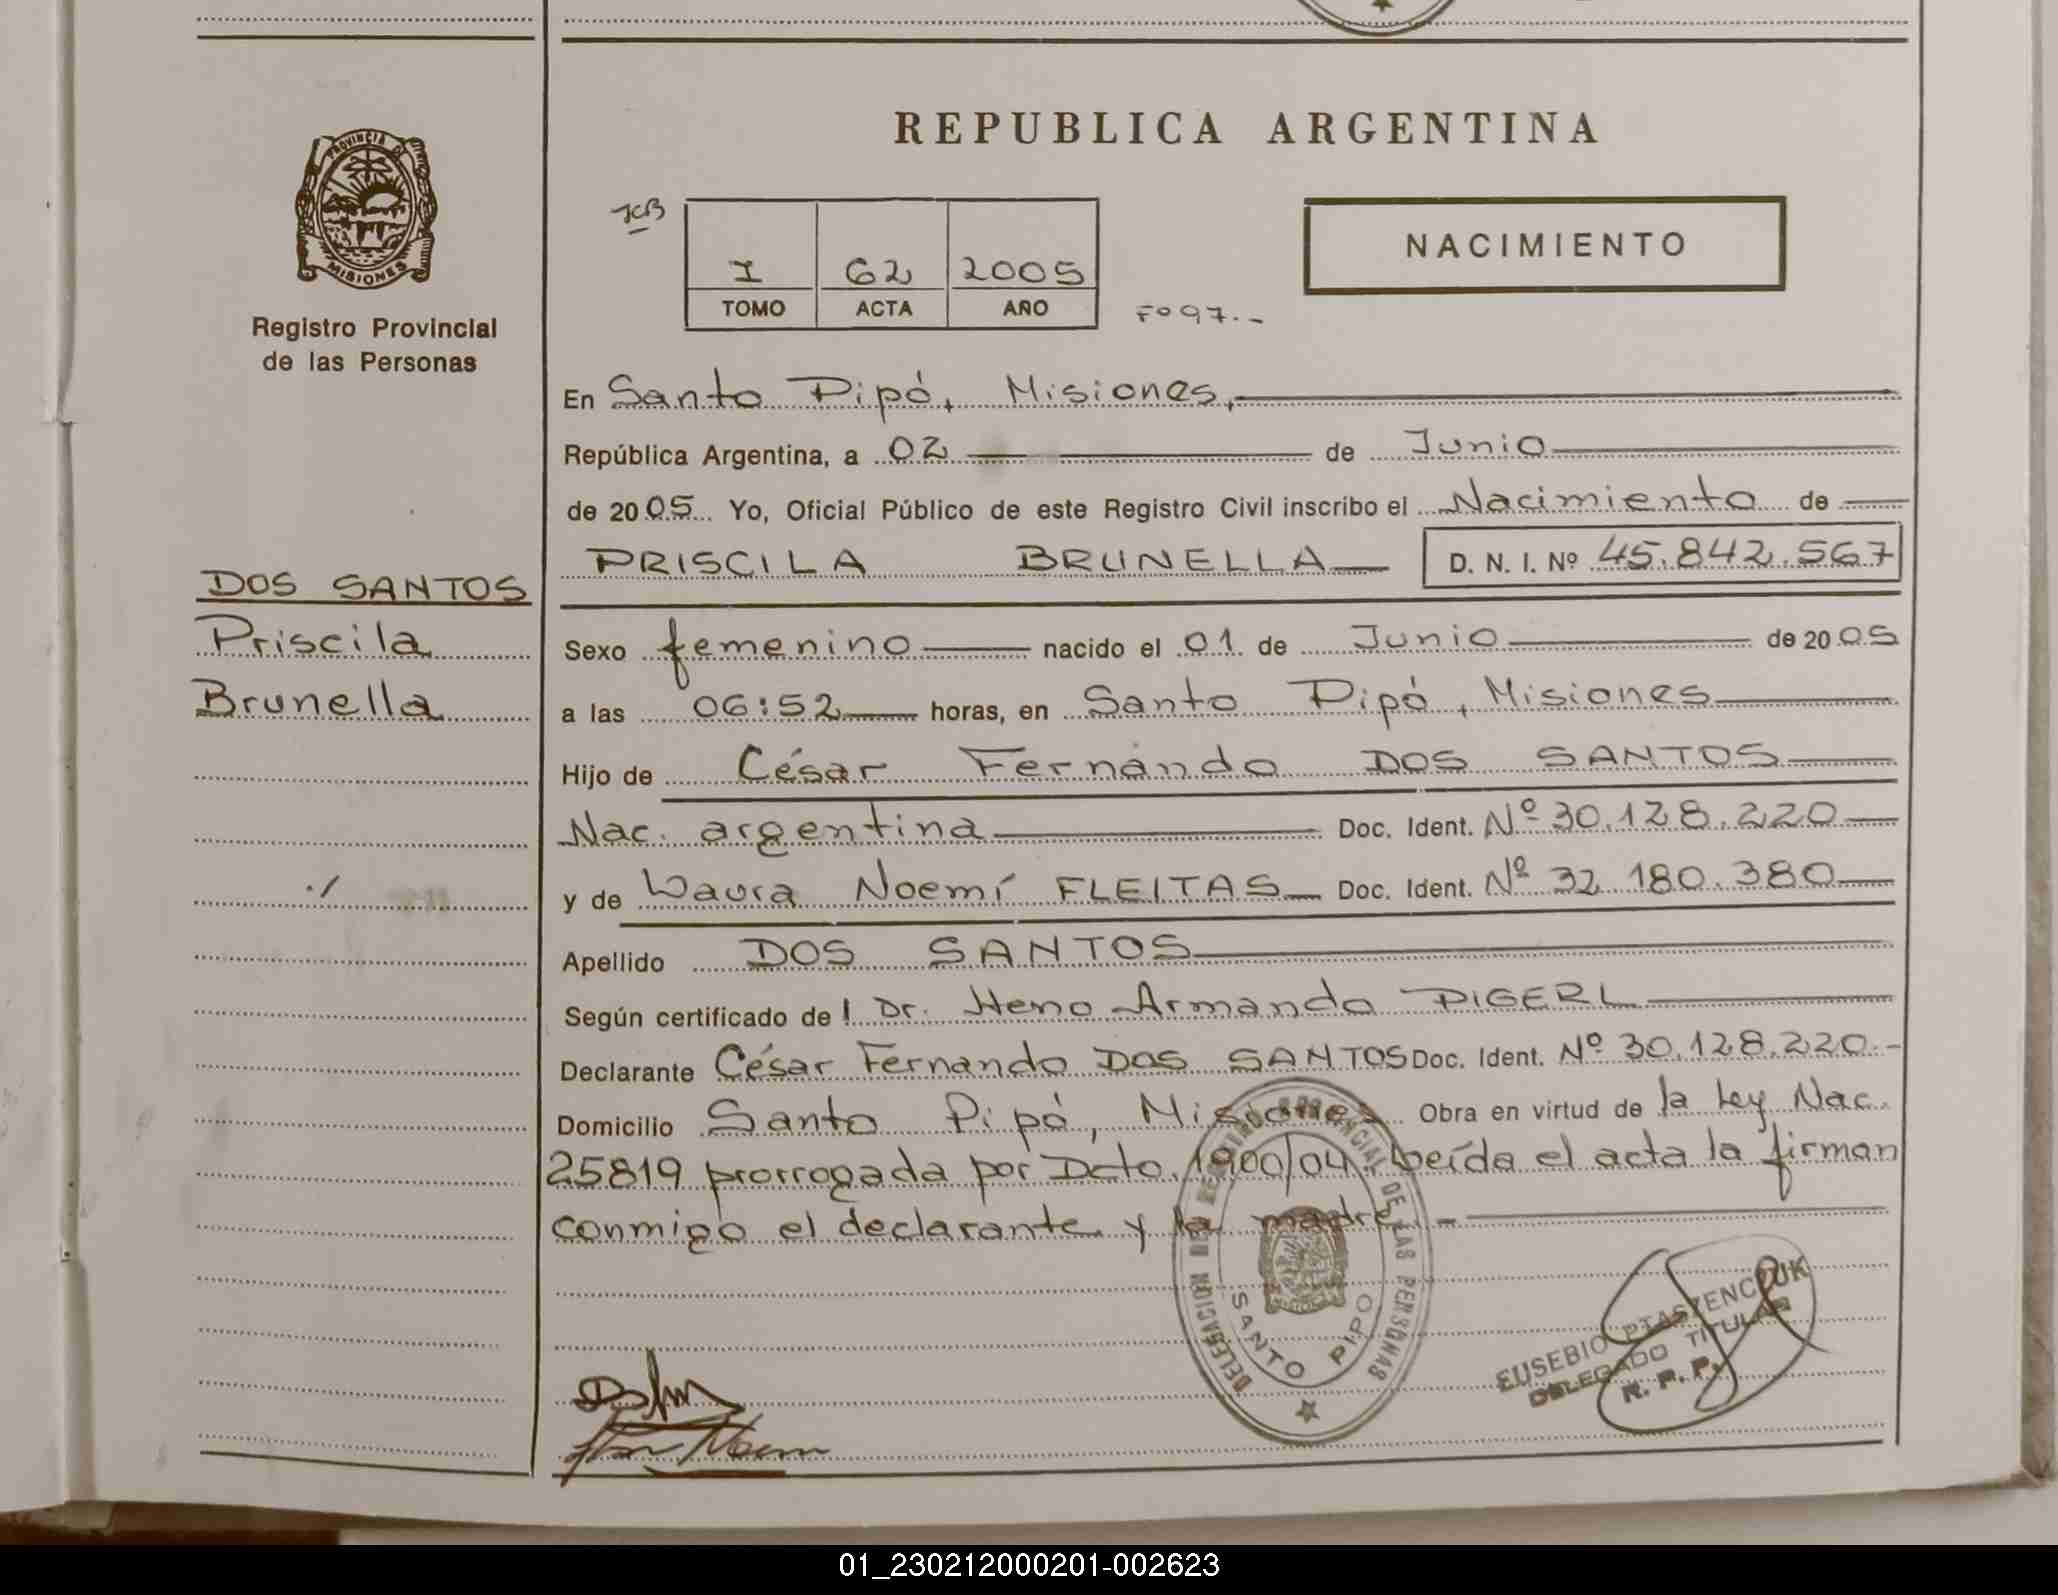 REPUBLICA ARGENTINA
PROVINCIA DE
MISIONES
Registro Provincial
de las Personas
I 62 2005
TOMO ACTA AÑO
Fº 97.-
NACIMIENTO
En Santo Pipó, Misiones,
República Argentina, a 02 de Junio
de 2005 Yo, Oficial Público de este Registro Civil inscribo el Nacimiento de
PRISCILA BRUNELLA D. N. I. Nº 45.842.567
DOS SANTOS
Priscila
Brunella
Sexo femenino nacido el 01 de Junio de 2005
a las 06:52 horas, en Santo Pipó, Misiones
Hijo de César Fernando DOS SANTOS
Nac. argentina Doc. Ident. Nº 30.128.220
y de Laura Noemí FLEITAS Doc. Ident. Nº 32 180.380
Apellido DOS SANTOS
Según certificado del Dr. Heno Armando PIGERL
Declarante César Fernando DOS SANTOS Doc. Ident. Nº 30.128.220.-
Domicilio Santo Pipó, Misiones Obra en virtud de la Ley Nac.
25819 prorrogada por Dcto. 1900/04. Leída el acta la firman
conmigo el declarante y la madre.-
DELEGACION DEL REGISTRO PROVINCIAL DE LAS PERSONAS
SANTO PIPO
EUSEBIO PTASZENCZUK
DELEGADO TITULAR
R. P. P.
01_230212000201-002623